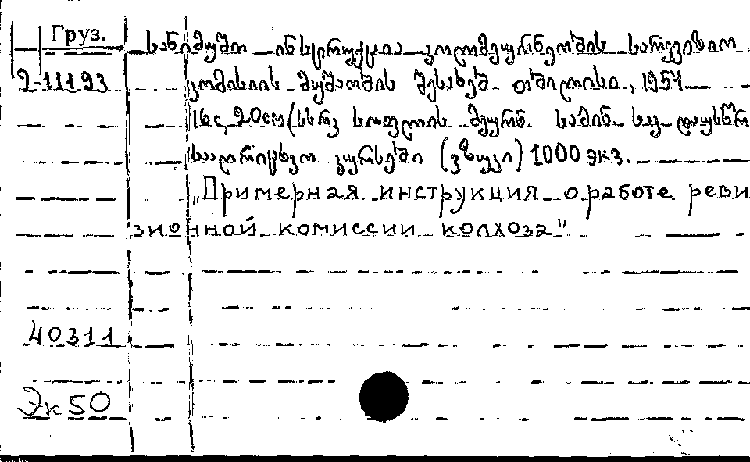 Груз.
სანიმუშო ინსტრუქცია კოლმეურნეობის სარევიზიო
2-11193
კომისიის მუშაობის შესახებ. თბილისი, 1957
16с, 20см (სსრკ სოფლის მეურნ. სამინ.
კურსები 1000 экз.
„Примерная инструкция о работе реви
зионной комиссии колхоза"
40311
Эк50